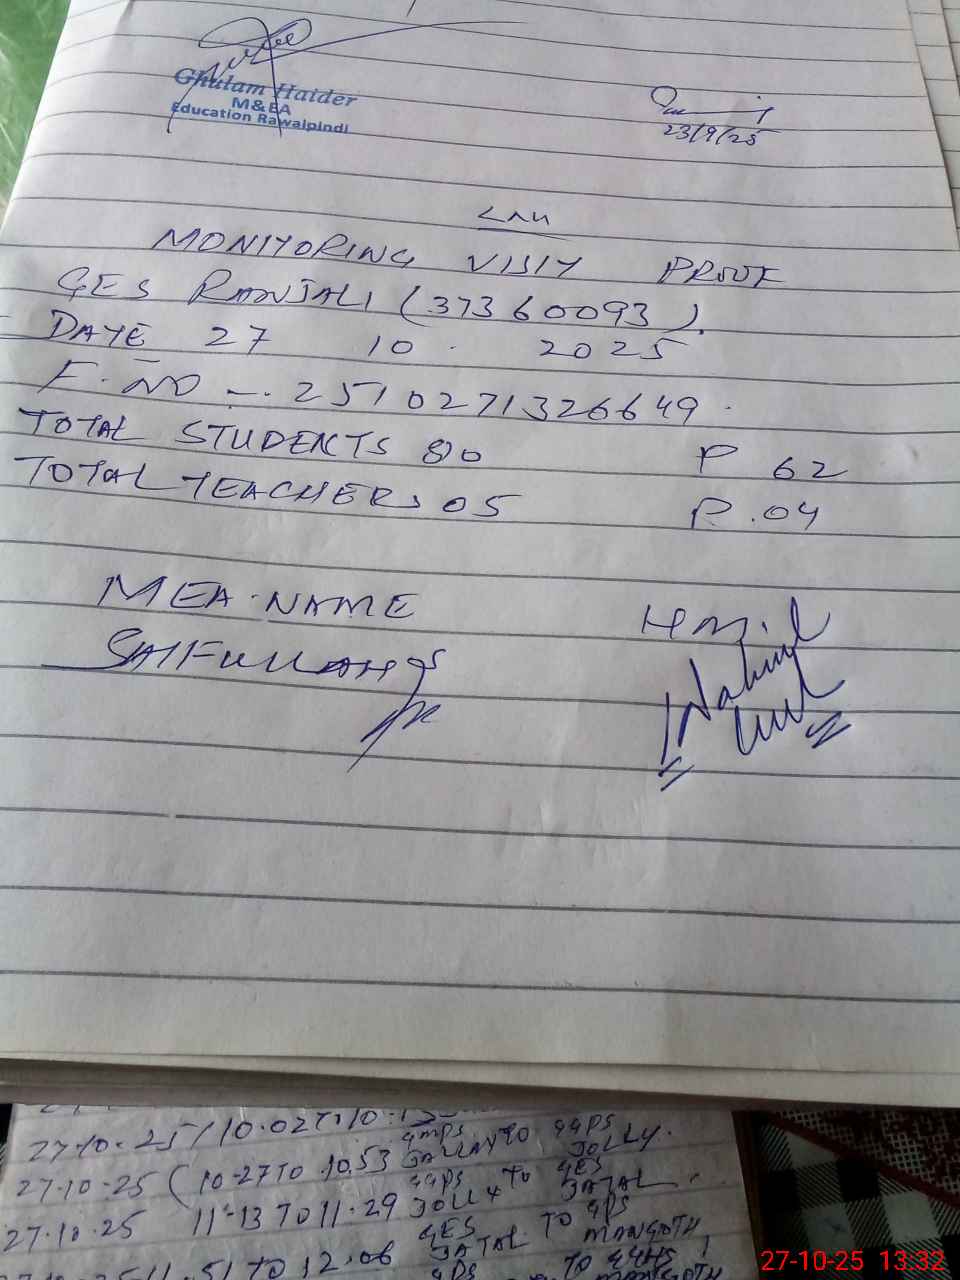 Ghulam Haider
M&EA
Education Rawalpindi
23/9/25
MONITORING VISIT PROUF
GES RANJALI (37360093).
DATE 27 10. 2025
F. NO -. 2510271326649.
TOTAL STUDENTS 80 P 62
TOTAL TEACHERS 05 P.04
MEA.NAME
SAIFULLAH
27-10-25/10.02 TO
27-10-25 (10-27 TO 10.53 GGPS JOLLY.
27.10.25 11-13 TO 11.29 GGPS JOLLY TO GES JATAL.
TO 12.06 GES JATAL TO GPS MANGOTH
27-10-25 13:32